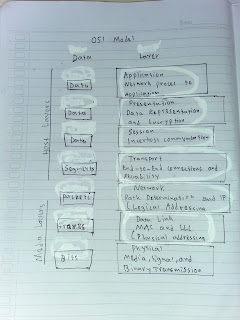 OSI Model
Data Layer
Host Layers
Data
Application
Network process to
application
Data
Presentation
Data Representation
and Encryption
Data
Session
Interhost communication
Segments
Transport
End-to-End connections and
Reliability
Media Layers
Packets
Network
Path Determination and IP
(Logical Addressing
Frames
Data Link
MAC and LLC
(Physical addressing
Bits
Physical
Media, Signal, and
Binary Transmission